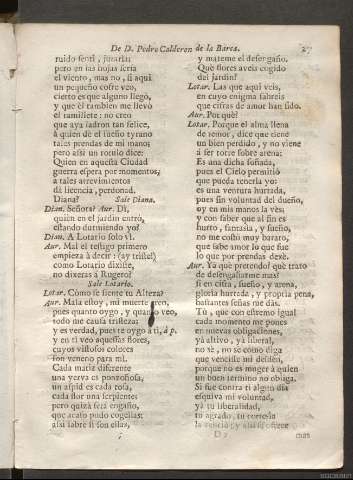 De D. Pedro Calderon de la Barca. 27
ruìdo sentì, jurarìa:
pero en las hojas serìa
el viento, mas no, si aqui
un pequeño cofre veo,
cierto es que alguno llegò,
y que èl tambien me llevò
el ramillete: no creo
que aya ladron tan felice,
à quien dè el sueño tyrano
tales prendas de mi mano;
pero assi un rotulo dice:
Quien en aquesta Ciudad
guerra espera por momentos,
à tales atrevimientos
dà licencia, perdonad.
Diana? Sale Diana.
Dian. Señora? Aur. Dì,
quièn en el jardin entrò,
estando durmiendo yo?
Dian. A Lotario solo vì.
Aur. Mal el testigo primero
empieza à decir: (ay triste!)
como Lotario dixiste,
no dixeras à Rugero?
Sale Lotario.
Lotar. Como se siente tu Alteza?
Aur. Mala estoy, mi muerte creo,
pues quanto oygo, y quanto veo,
todo me causa tristeza;
y es verdad, pues te oygo à ti, à p.
y en ti veo aquessas flores,
cuyos vistosos colores
son veneno para mì.
Cada matiz diferente
una yerva es ponzoñosa,
un aspid es cada rosa,
cada flor una serpiente:
pero quizà serà engaño,
que acaso pudo cogellas:
assi sabrè si son ellas,
y mateme el desengaño.
Què flores aveis cogido
del jardin?
Lotar. Las que aqui veis,
en cuyo enigma sabreis
que cifras de amor han sido.
Aur. Por què?
Lotar. Porque el alma llena
de temor, dice que tiene
un bien perdido, y no viene
à ser torre sobre arena;
Es una dicha soñada,
pues el Cielo permitiò
que pueda tenerla yo:
es una ventura hurtada,
pues sin voluntad del dueño,
oy en mis manos la vès;
y con saber que al fin es
hurto, fantasìa, y sueño,
no me costò muy barato,
que sabe amor lo que fue
lo que por prendas dexè.
Aur. Ya què pretendo? què trato
de desengañarme mas?
si en cifra, sueño, y arena,
gloria hurtada, y propria pena,
bastantes señas me dàs.
Tù, que con estremo igual
cada momento me pones
en nuevas obligaciones,
yà altivo, yà liberal,
no sè, no sè como diga
que venciste mi desdèn,
porque no es muger à quien
un buen termino no obliga.
Si fue contra ti algun dia
esquiva mi voluntad,
yà tu liberalidad,
tu agrado, tu cortesìa
la venciò; y assi se ofrece
D 2 mas